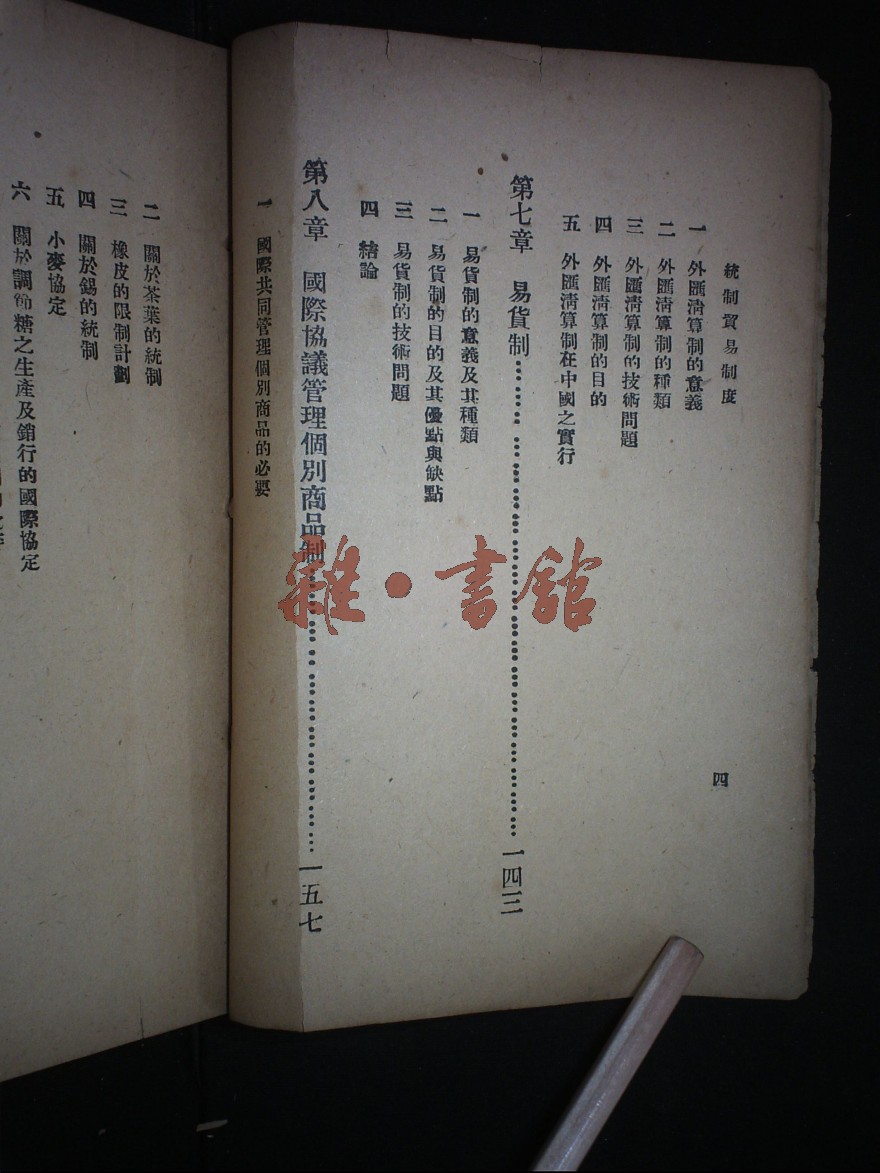 統制貿易制度
四
一 外匯清算制的意義
二 外匯清算制的種類
三 外匯清算制的技術問題
四 外匯清算制的目的
五 外匯清算制在中國之實行
第七章 易貨制……一四三
一 易貨制的意義及其種類
二 易貨制的目的及其優點與缺點
三 易貨制的技術問題
四 結論
第八章 國際協議管理個別商品制……一五七
一 國際共同管理個別商品的必要
二 關於茶葉的統制
三 橡皮的限制計劃
四 關於錫的統制
五 小麥協定
六 關於調節糖之生產及銷行的國際協定
雜·書館